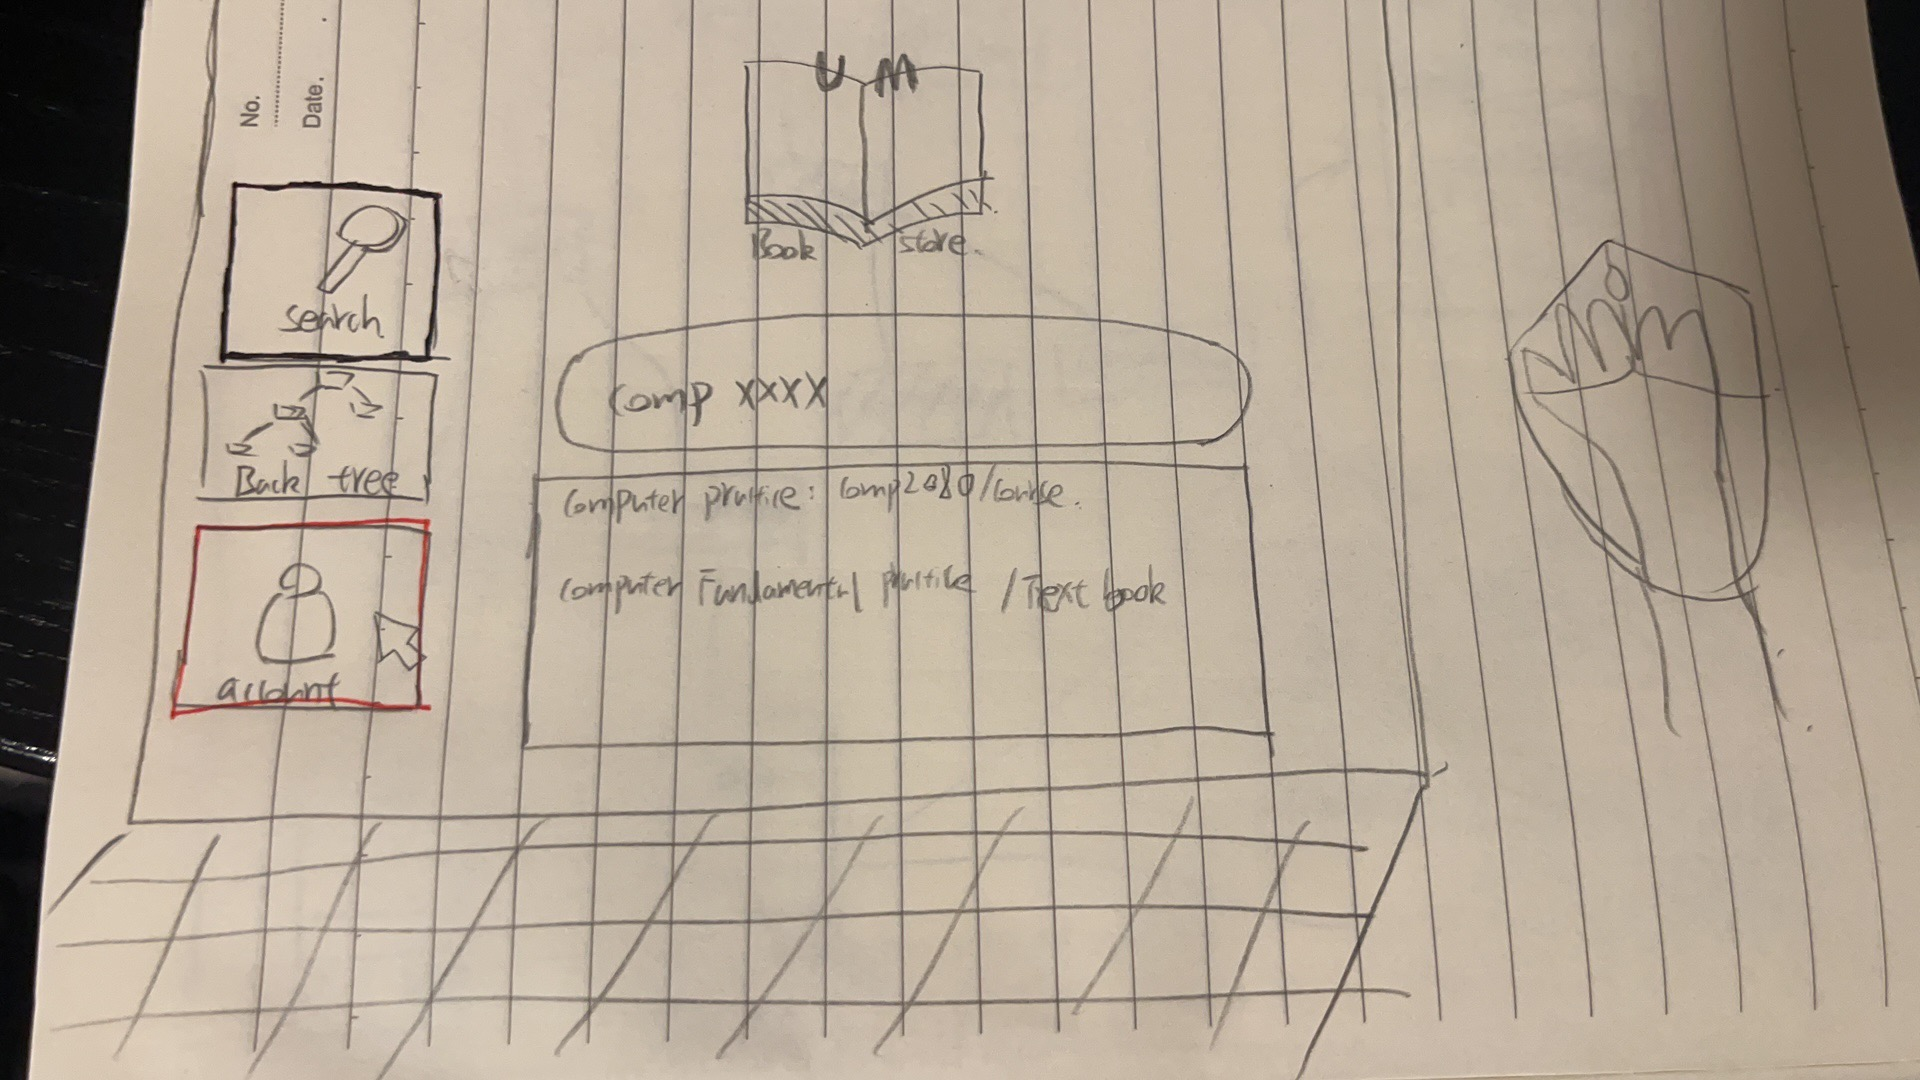 No.
Date.
U M
Book store.
search
Back tree
account
comp XXXX
computer practice: comp2080/course.
computer Fundamental practice /Text book